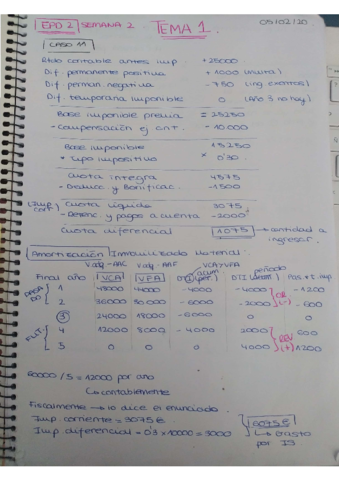 EPD 2 | SEMANA 2 TEMA 1. 05/02/20
CASO 11
Rtdo contable antes imp +25000
Dif permanente positiva +1000 (multa)
Dif perman. negativa -750 (ing exentos)
Dif temporaria imponible 0 (Año 3 no hay)
Base imponible previa = 25250
- Compensación ej ant. -10.000
Base imponible 15250
* Tipo impositivo × 0'30
Cuota íntegra 4575
- Deducc. y Bonificac. -1500
Cuota líquida 3075
- Retenc. y pagos a cuenta -2000
Cuota diferencial 1075 → cantidad a ingresar.
Amortización Inmovilizado Material.
Final año VCA VFA
1 48000 44000 -4000 -4000 -1200
2 36000 30000 -6000 -2000 -600
3 24000 18000 -6000 0 0
4 12000 8000 -4000 2000 600
5 0 0 0 4000 1200
60000 / 5 = 12000 por año
↳ contablemente
Fiscalmente → lo dice el enunciado
Imp. corriente = 3075€
Imp. diferencial = 0'3 × 10000 = 3000
6075€
↳ Gasto por IS